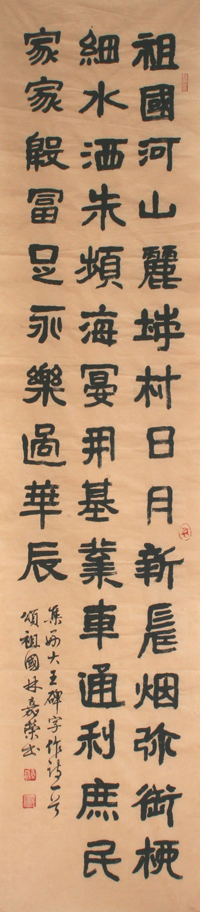 祖國河山麗城村日月新晨烟弥街柳
細水洒朱頻海晏用基業車通利庶民
家家殷冨足永樂過華辰
集好大王碑字作詩一首
頌祖國林嘉榮书